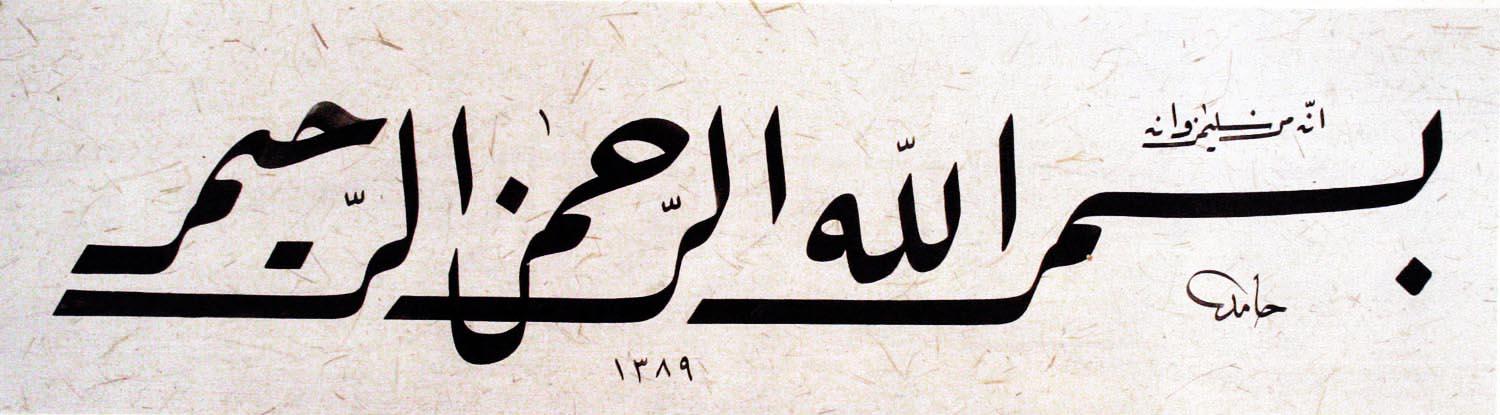 انّه من سليمن وانه
بسم الله الرّحمن الرّحيم
حامد
١٣٨٩